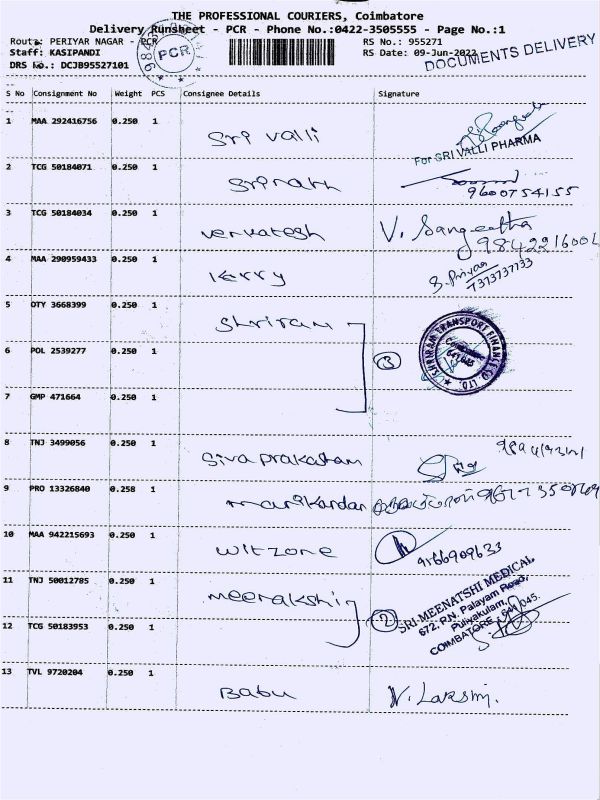 THE PROFESSIONAL COURIERS, Coimbatore
Delivery Runsheet - PCR - Phone No.:0422-3505555 - Page No.:1
Route: PERIYAR NAGAR - PCR RS No.: 955271
Staff: KASIPANDI RS Date: 09-Jun-2022
DRS No.: DCJB95527101
PCR
DOCUMENTS DELIVERY
S No Consignment No Weight PCS Consignee Details Signature
1 MAA 292416756 0.250 1 Sri valli
For SRI VALLI PHARMA
2 TCG 50184071 0.250 1 Srinath 9600754155
3 TCG 50184034 0.250 1 Venkatesh V. Sangeetha
984221600
4 MAA 290959433 0.250 1 Kerry S. Priyaa
7373737733
5 OTY 3668399 0.250 1 Shriram
SHRIRAM TRANSPORT FINANCE CO. LTD.
Coimbatore
641 045
6 POL 2539277 0.250 1 3
7 GMP 471664 0.250 1
8 TNJ 3499056 0.250 1 Siva prakasam
9 PRO 13326840 0.258 1 Manikandan
10 MAA 942215693 0.250 1 Witzone 9166909633
11 TNJ 50012785 0.250 1 Meenakshi
2
SRI MEENATSHI MEDICAL
672, P.N. Palayam Road,
Puliyakulam,
COIMBATORE - 641 045.
12 TCG 50183953 0.250 1
13 TVL 9720204 0.250 1 Babu V. Laksmi.